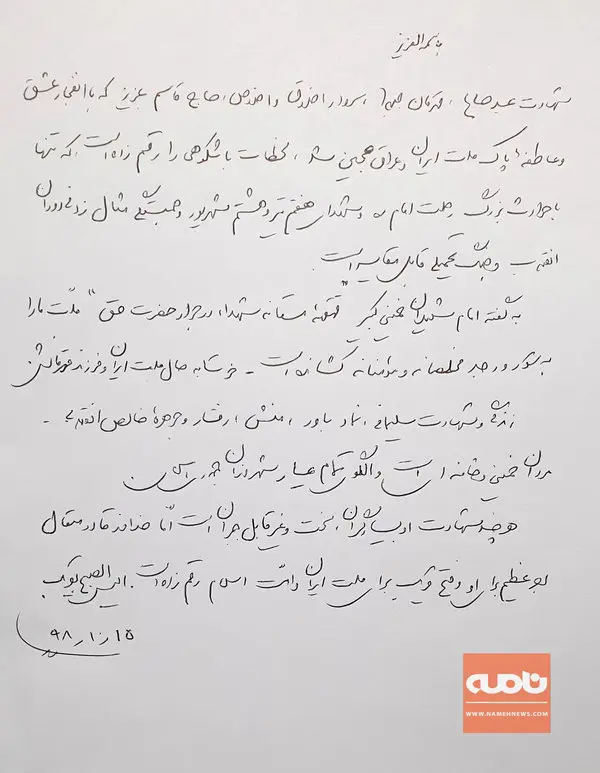 باسمه العزیز
شهادت عبد صالح، قهرمان، سردار اخلاق و اخلاص، حاج قاسم عزیز که با انفجار عشق
و عاطفهٔ پاک ملت ایران و عراق عجین شد، لحظات باشکوهی را رقم زده است که تنها
با حوادث بزرگ رحلت امام ره و شهدای هفتم تیر و هشتم شهریور و همبستگی مثال زدنی دوران
انقلاب و جنگ تحمیلی قابل مقایسه است.
به گفته امام شهیدان خمینی کبیر "قهقههٔ مستانه شهدا، در جوار حضرت حق" ملّت ما را
به شور و وجد مخلصانه و مؤمنانه کشانده است - خوشا به حال ملت ایران و فرزند قهرمانش
زندگی و شهادت سلیمانی نماد باور، منش، رفتار و چهرهٔ خالص انقلاب -
مردان خمینی و خامنه ای است و الگوی تمام عیار شهروندان جمهوری اسلامی
هر چند شهادت او بسیار گران، سخت و غیر قابل جبران است امّا خداوند قادر متعال
اجر عظیم برای او و فتح قریب برای ملت ایران و امّت اسلام رقم زده است. الیس الصبح بقریب
۹۸٫۱۰٫۱۵
نامه
WWW.NAMEHNEWS.COM